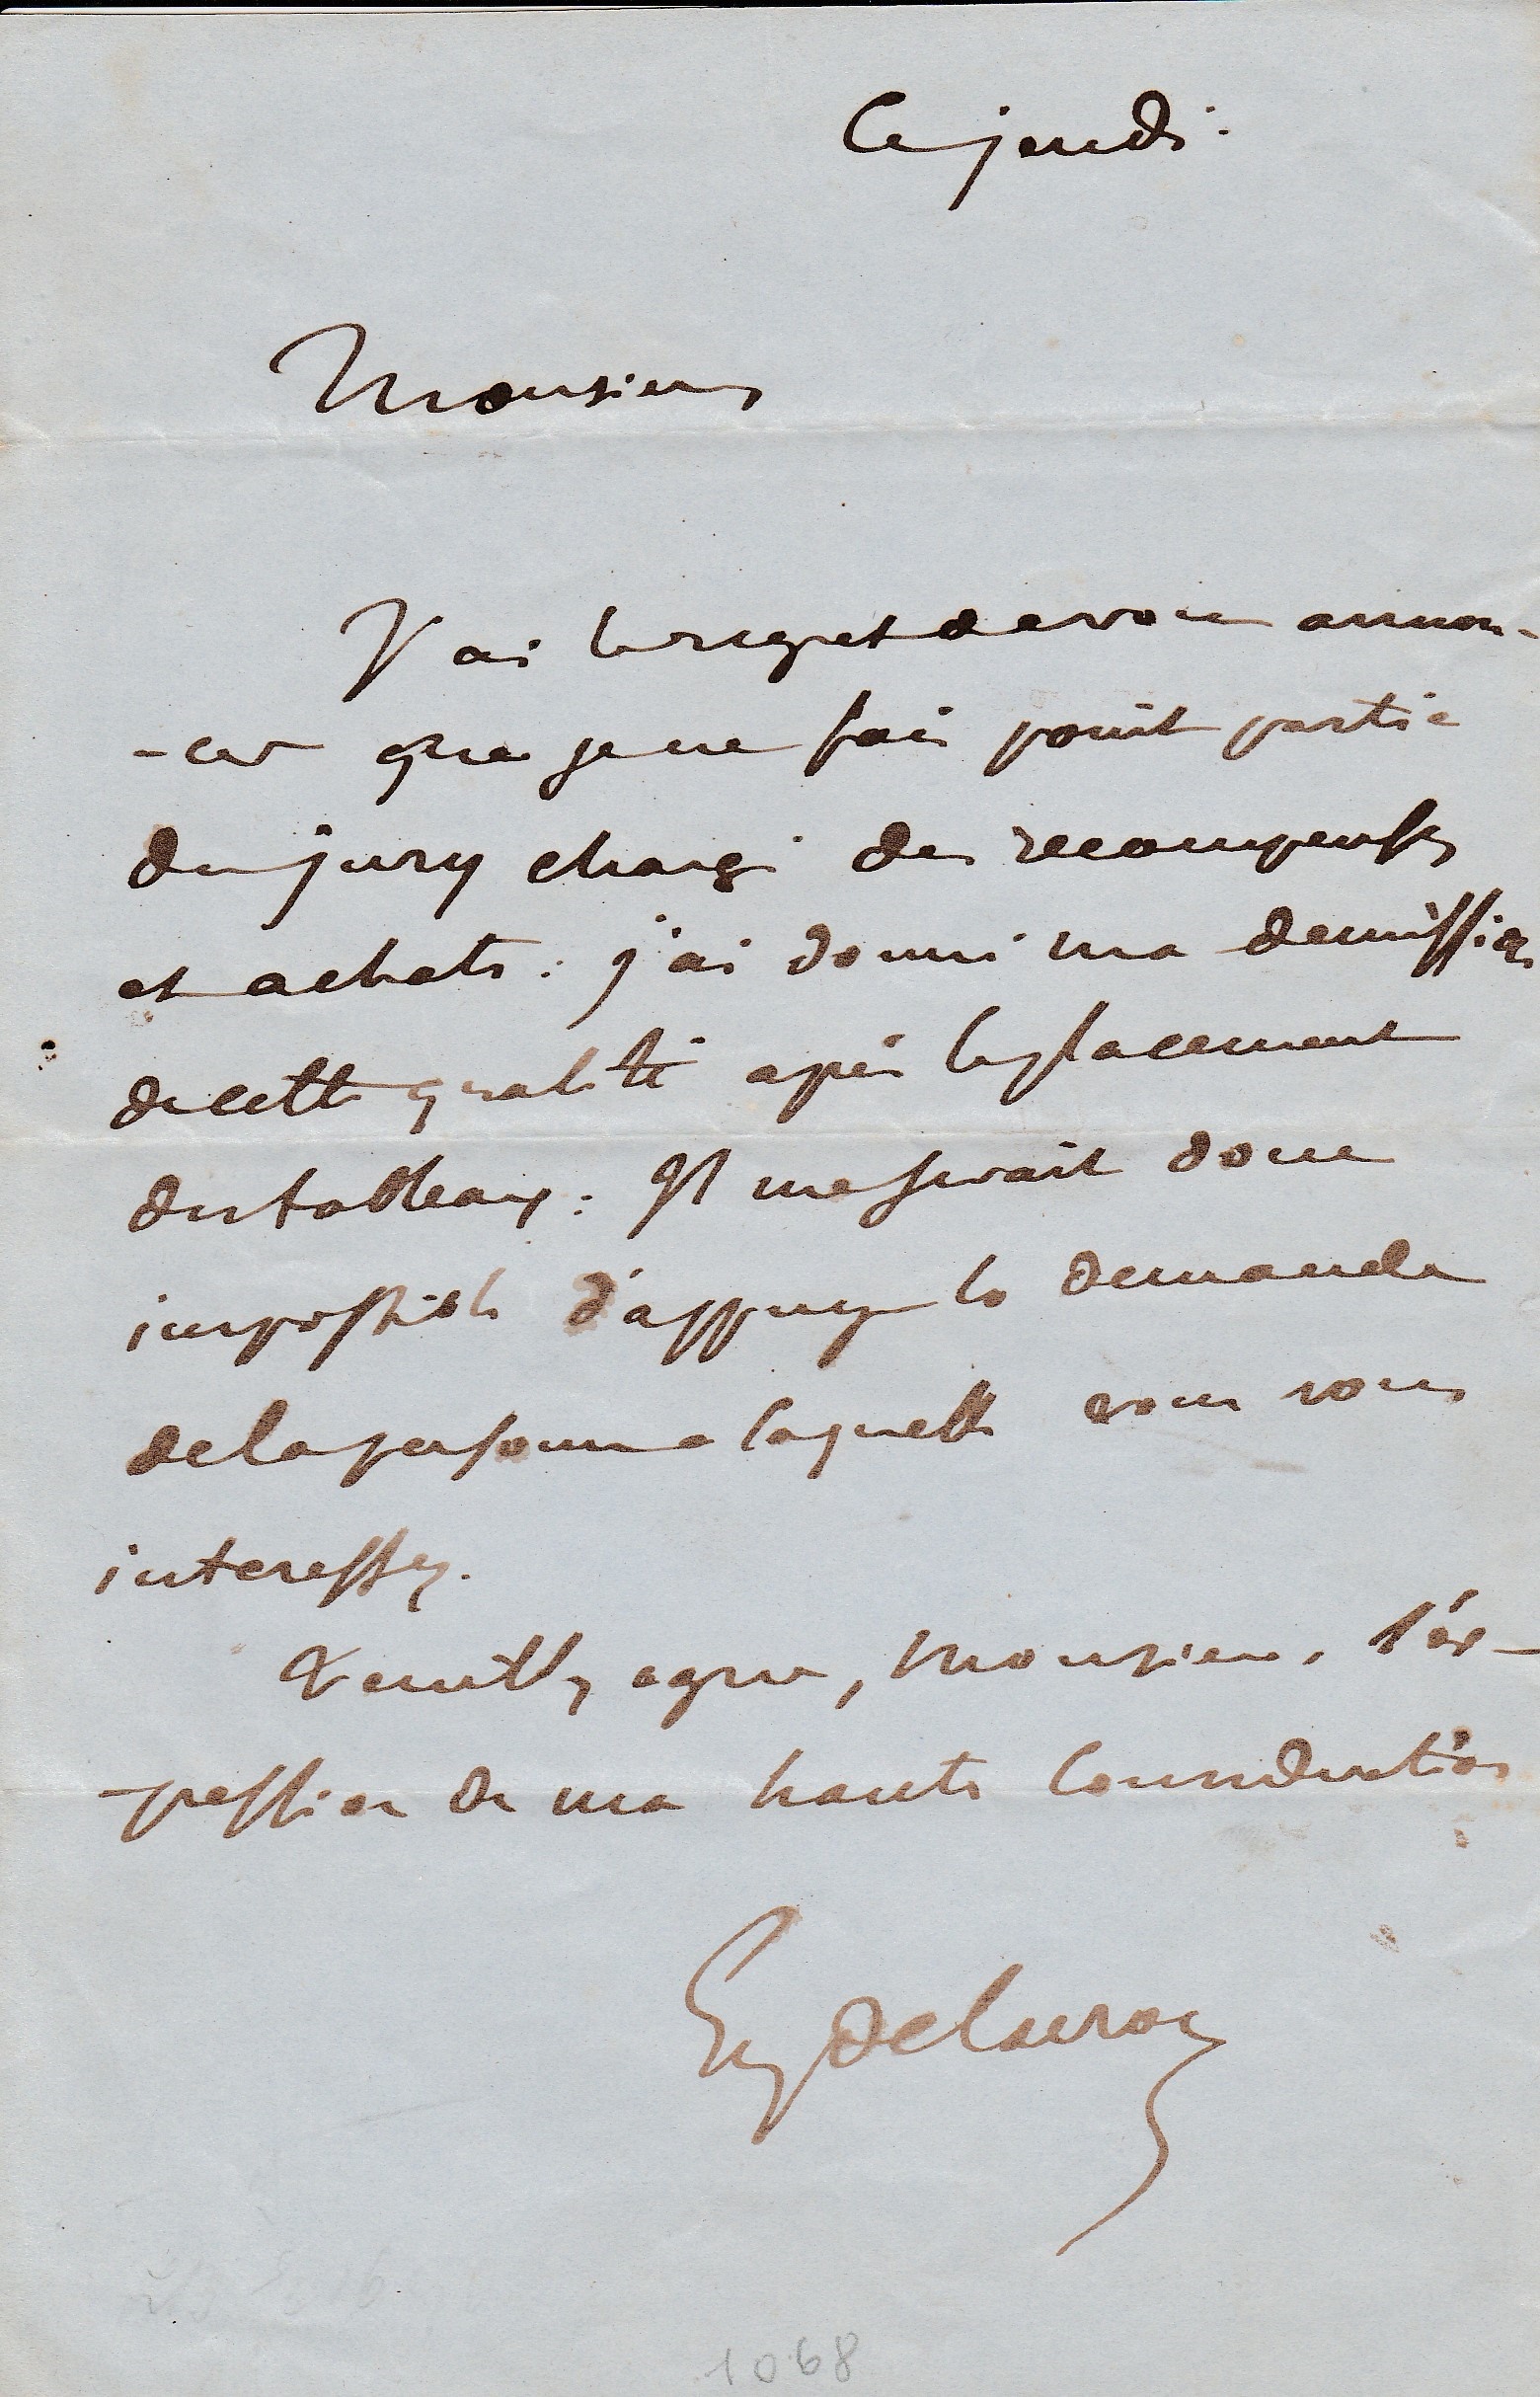 Ce jeudi.
Monsieur
J'ai le regret de vous annon-
-cer que je ne fais point partie
du jury chargé des recompenses
et achats : j'ai donné ma demission
de cette qualité après le placement
des tableaux : Il me serait donc
impossible d'appuyer la demande
de la personne a laquelle vous vous
interessez.
Veuillez agreer, Monsieur, l'ex-
-pression de ma haute consideration
Eug Delacroix
1068